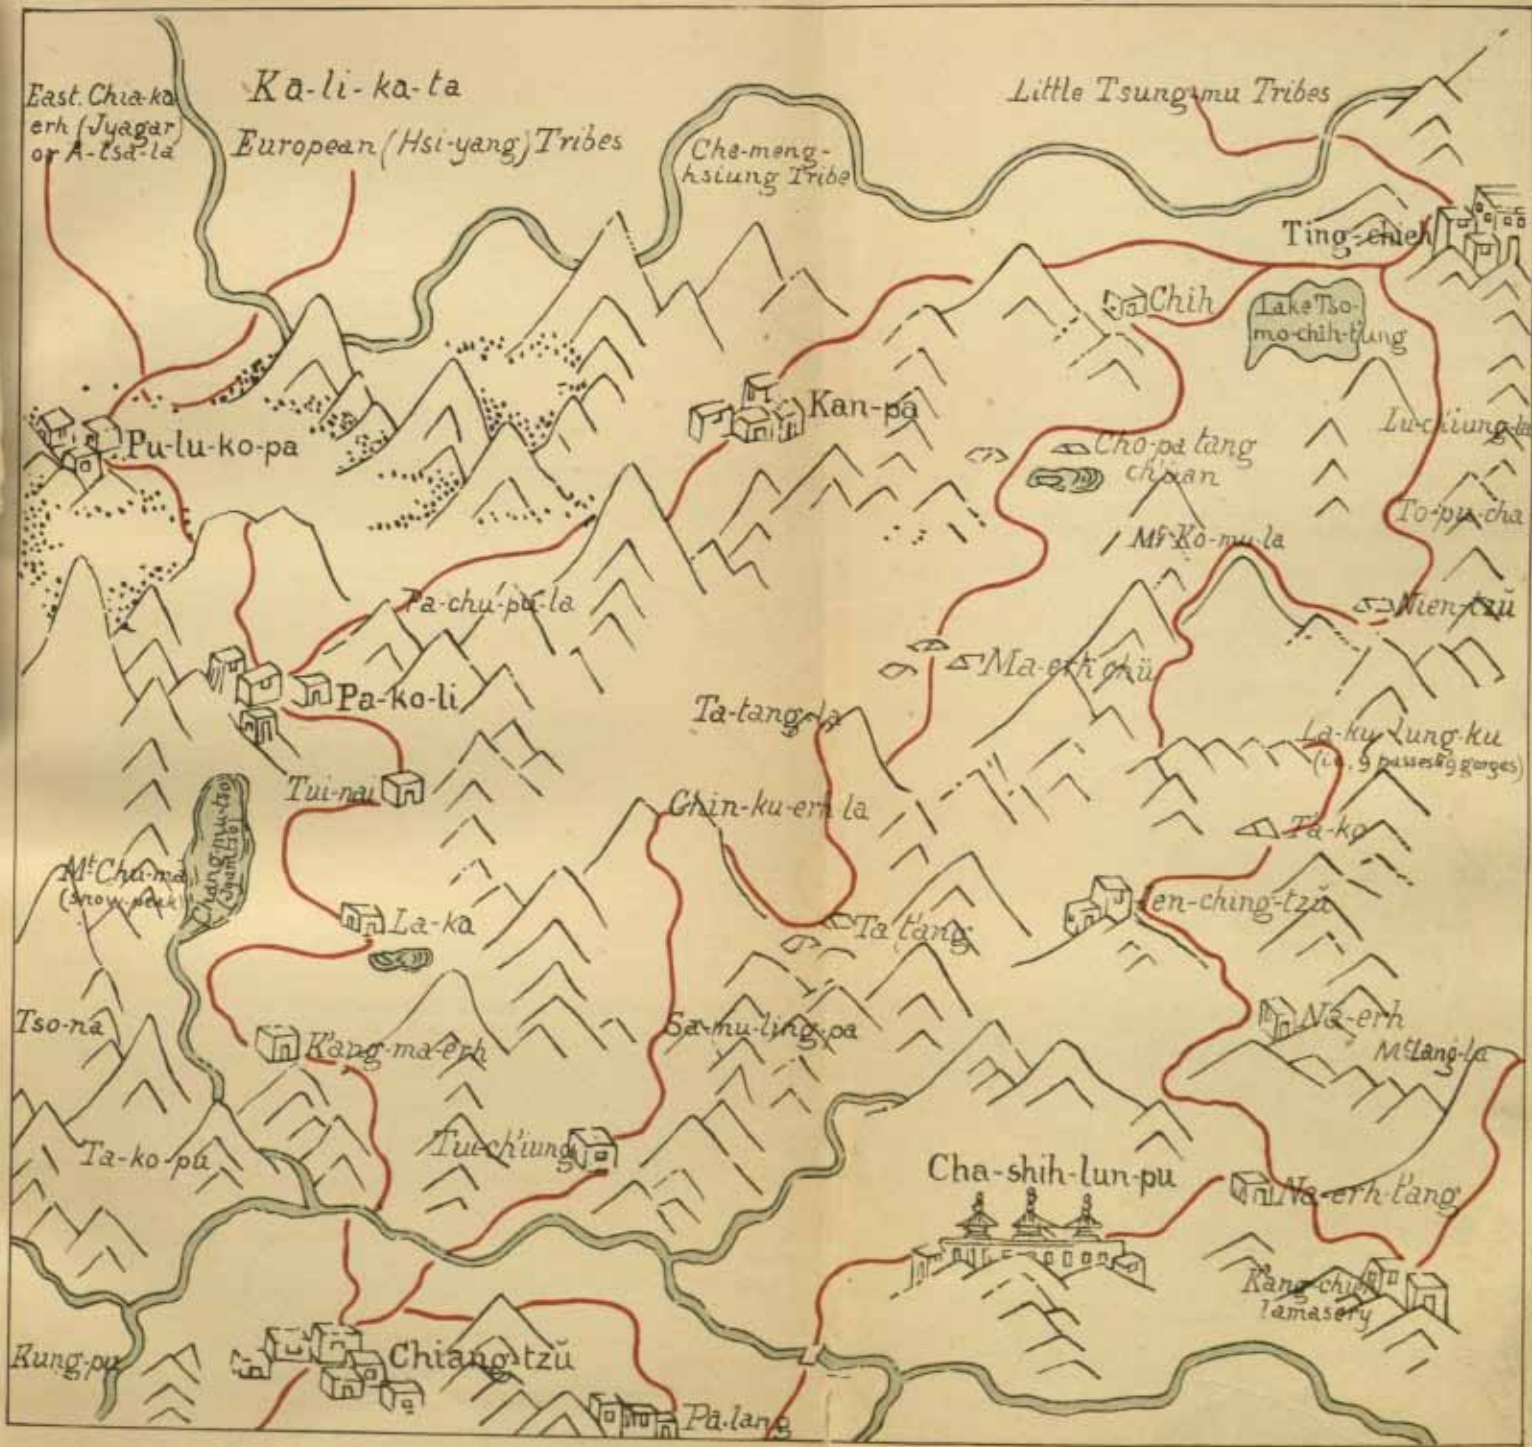 East. Chia-ka
erh (Jyagar)
or A-tsa-la
Ka-li-ka-ta
European (Hsi-yang) Tribes
Che-meng-
hsiung Tribe
Little Tsung-mu Tribes
Ting-chieh
Chih
Lake Tso-
mo-chih-t'ung
Kan-pa
Pu-lu-ko-pa
Cho-pa tang
ch'uan
Lu-ch'iung-la
To-pu-cha
Mt Ko-mu-la
Nien-tzŭ
Pa-chu-pu-la
Ma-erh chü
Pa-ko-li
Ta-tang-la
La-ku lung-ku
(i.e. 9 passes & 9 gorges)
Tui-nai
Chin-ku-erh la
Ta-ko
Mt Chu-ma
(snow-peak)
Chang-mu-tso
La-ka
Ta t'ang
Jen-ching-tzŭ
Tso-na
K'ang-ma-erh
Sa-mu-ling-pa
Na-erh
Mt Lang-la
Ta-ko-pu
Tui-ch'iung
Cha-shih-lun-pu
Na-erh-t'ang
K'ang-chien
lamasery
Kung-pu
Chiang-tzŭ
Pa-lang